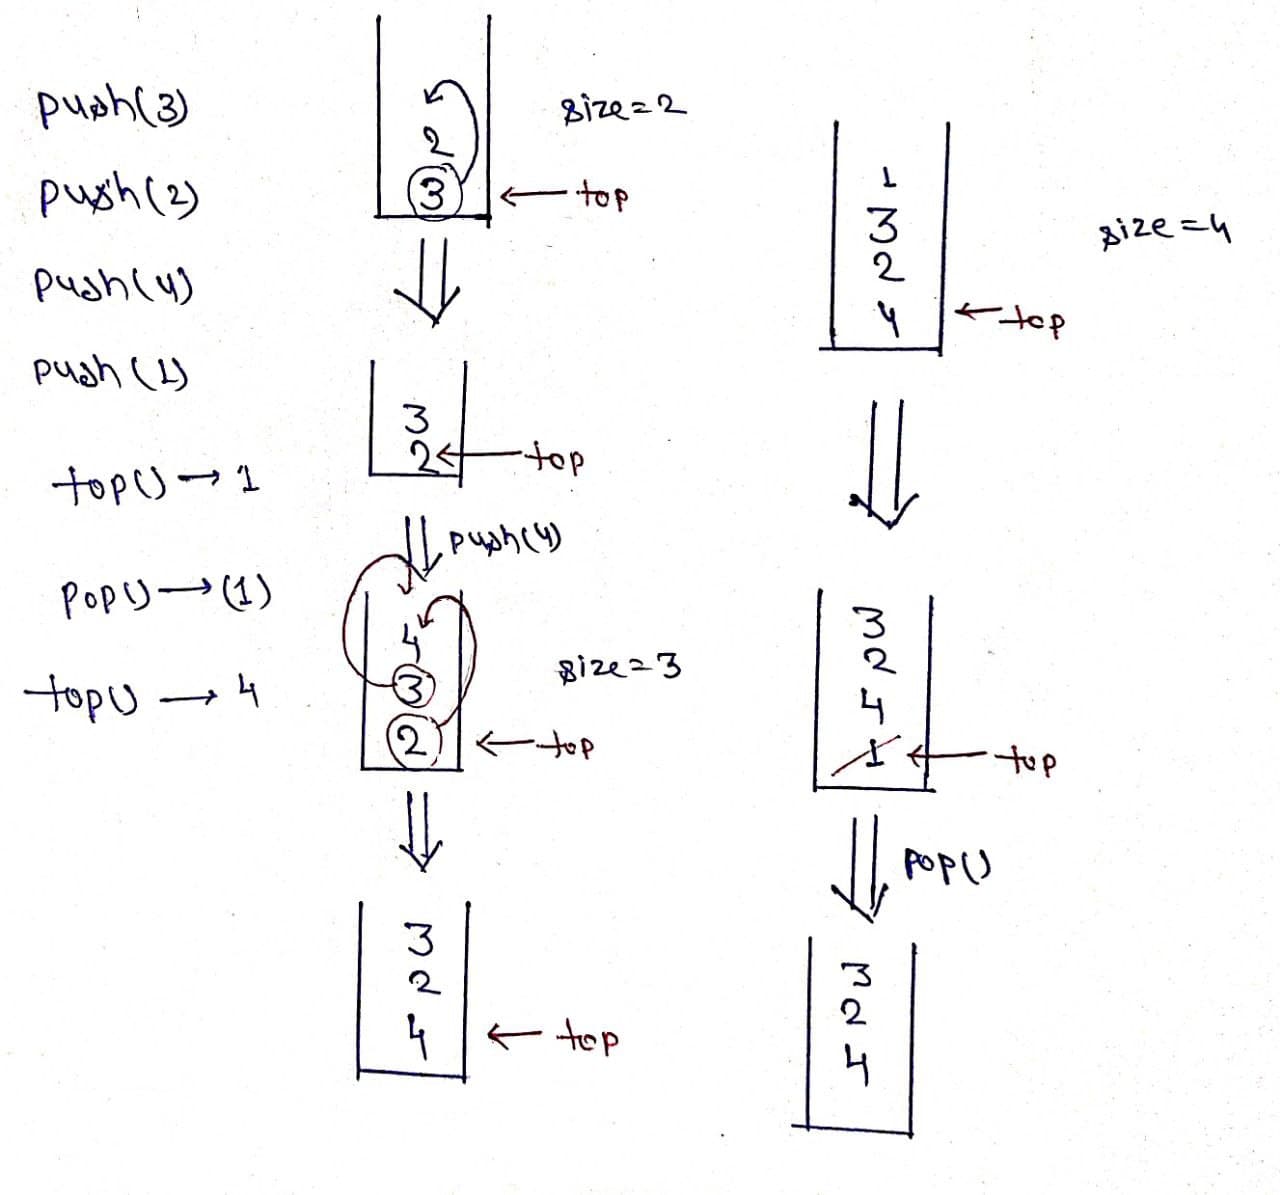 push(3)
push(2)
push(4)
push(1)
top() → 1
pop() → (1)
top() → 4
2
3
size=2
← top
3
2 ← top
push(4)
4
3
2
size=3
← top
3
2
4
← top
1
3
2
4
size=4
← top
3
2
4
1 ← top
pop()
3
2
4